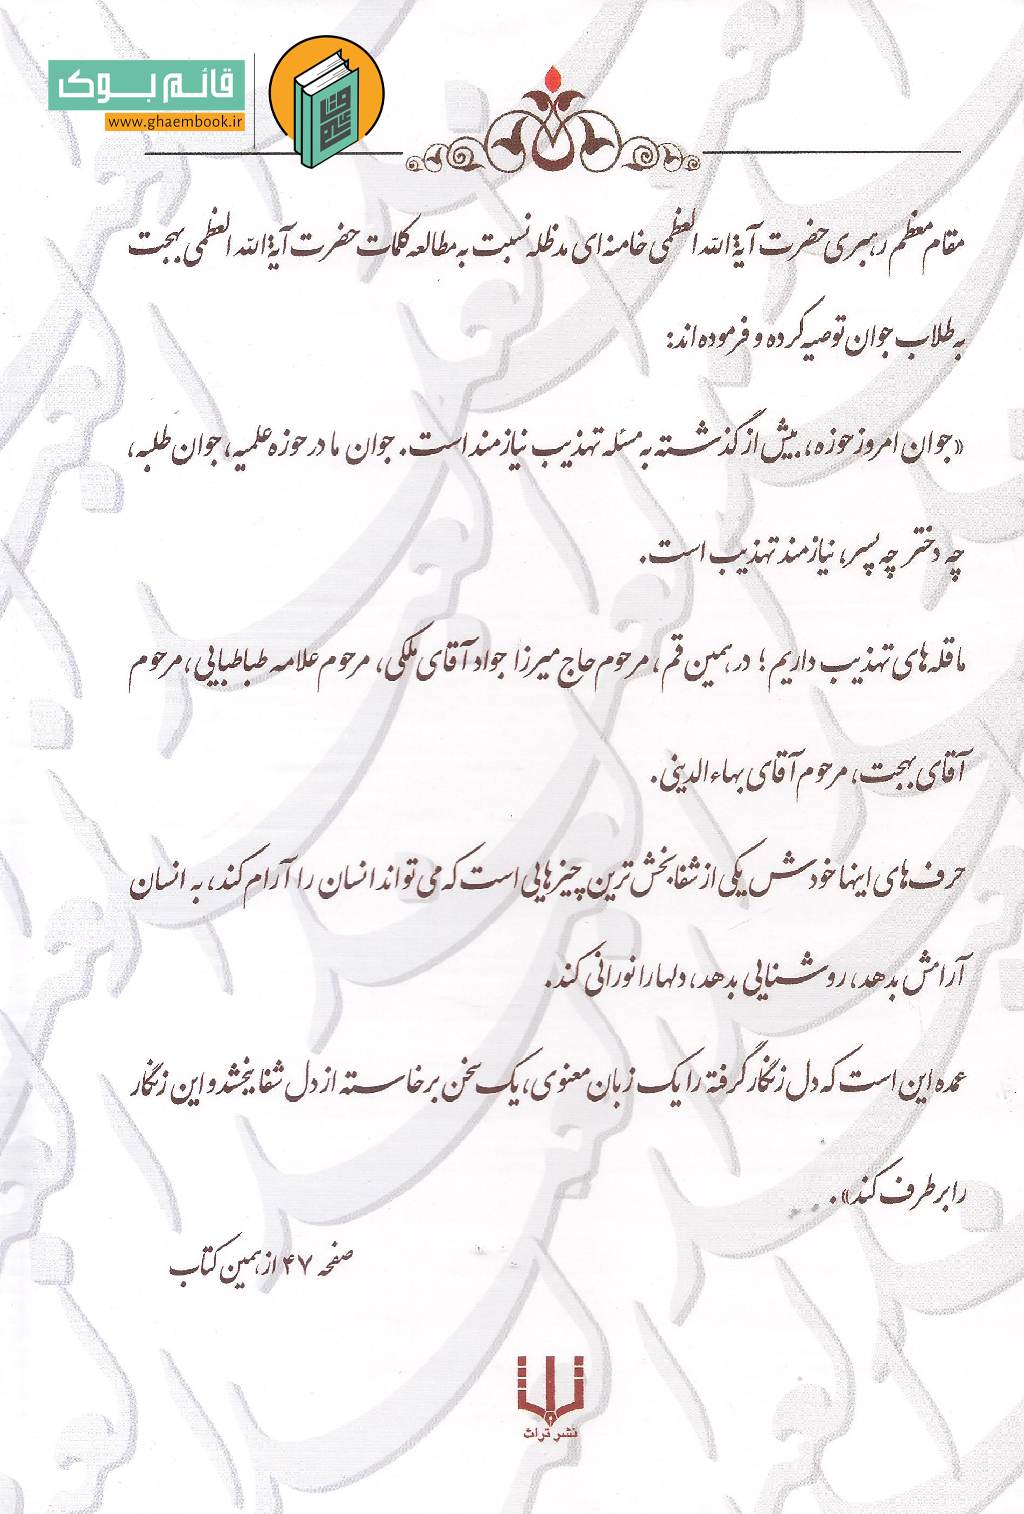 قائم بوک
www.ghaembook.ir
مقام معظم رهبری حضرت آیة الله العظمی خامنه ای مدظله نسبت به مطالعه کلمات حضرت آیة الله العظمی بهجت
به طلاب جوان توصیه کرده و فرموده اند:
«جوان امروز حوزه، بیش از گذشته به مسئله تهذیب نیازمند است. جوان ما در حوزه علمیه، جوان طلبه،
چه دختر چه پسر، نیازمند تهذیب است.
ما قله های تهذیب داریم؛ در همین قم، مرحوم حاج میرزا جواد آقای ملکی، مرحوم علامه طباطبایی، مرحوم
آقای بهجت، مرحوم آقای بهاءالدینی.
حرف های اینها خودش یکی از شفابخش ترین چیزهایی است که می تواند انسان را آرام کند، به انسان
آرامش بدهد، روشنایی بدهد، دلها را نورانی کند.
عمده این است که دل زنگار گرفته را یک زبان معنوی، یک سخن برخاسته از دل شفا بخشد و این زنگار
را برطرف کند».
صفحه ۴۷ از همین کتاب
نشر تراث